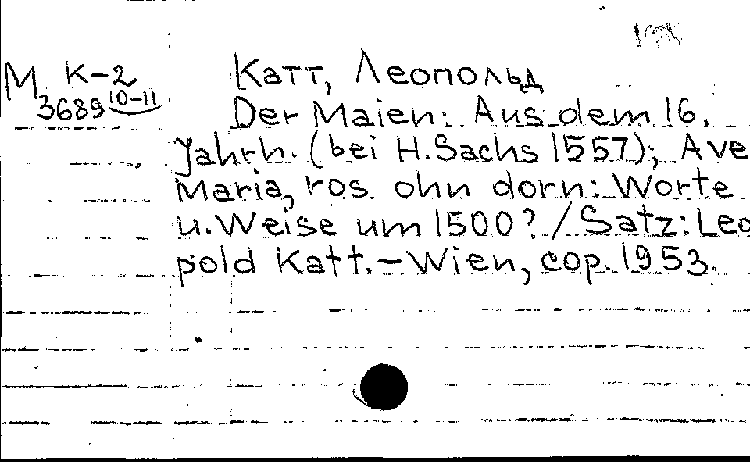 М К-2
3689 10-11
Катт, Леопольд
Der Maien: Aus dem 16.
Jahrh. (bei H.Sachs 1557); Ave
Maria, ros ohn dorn: Worte
u.Weise um 1500? / Satz: Leo
pold Katt.-Wien, cop. 1953.